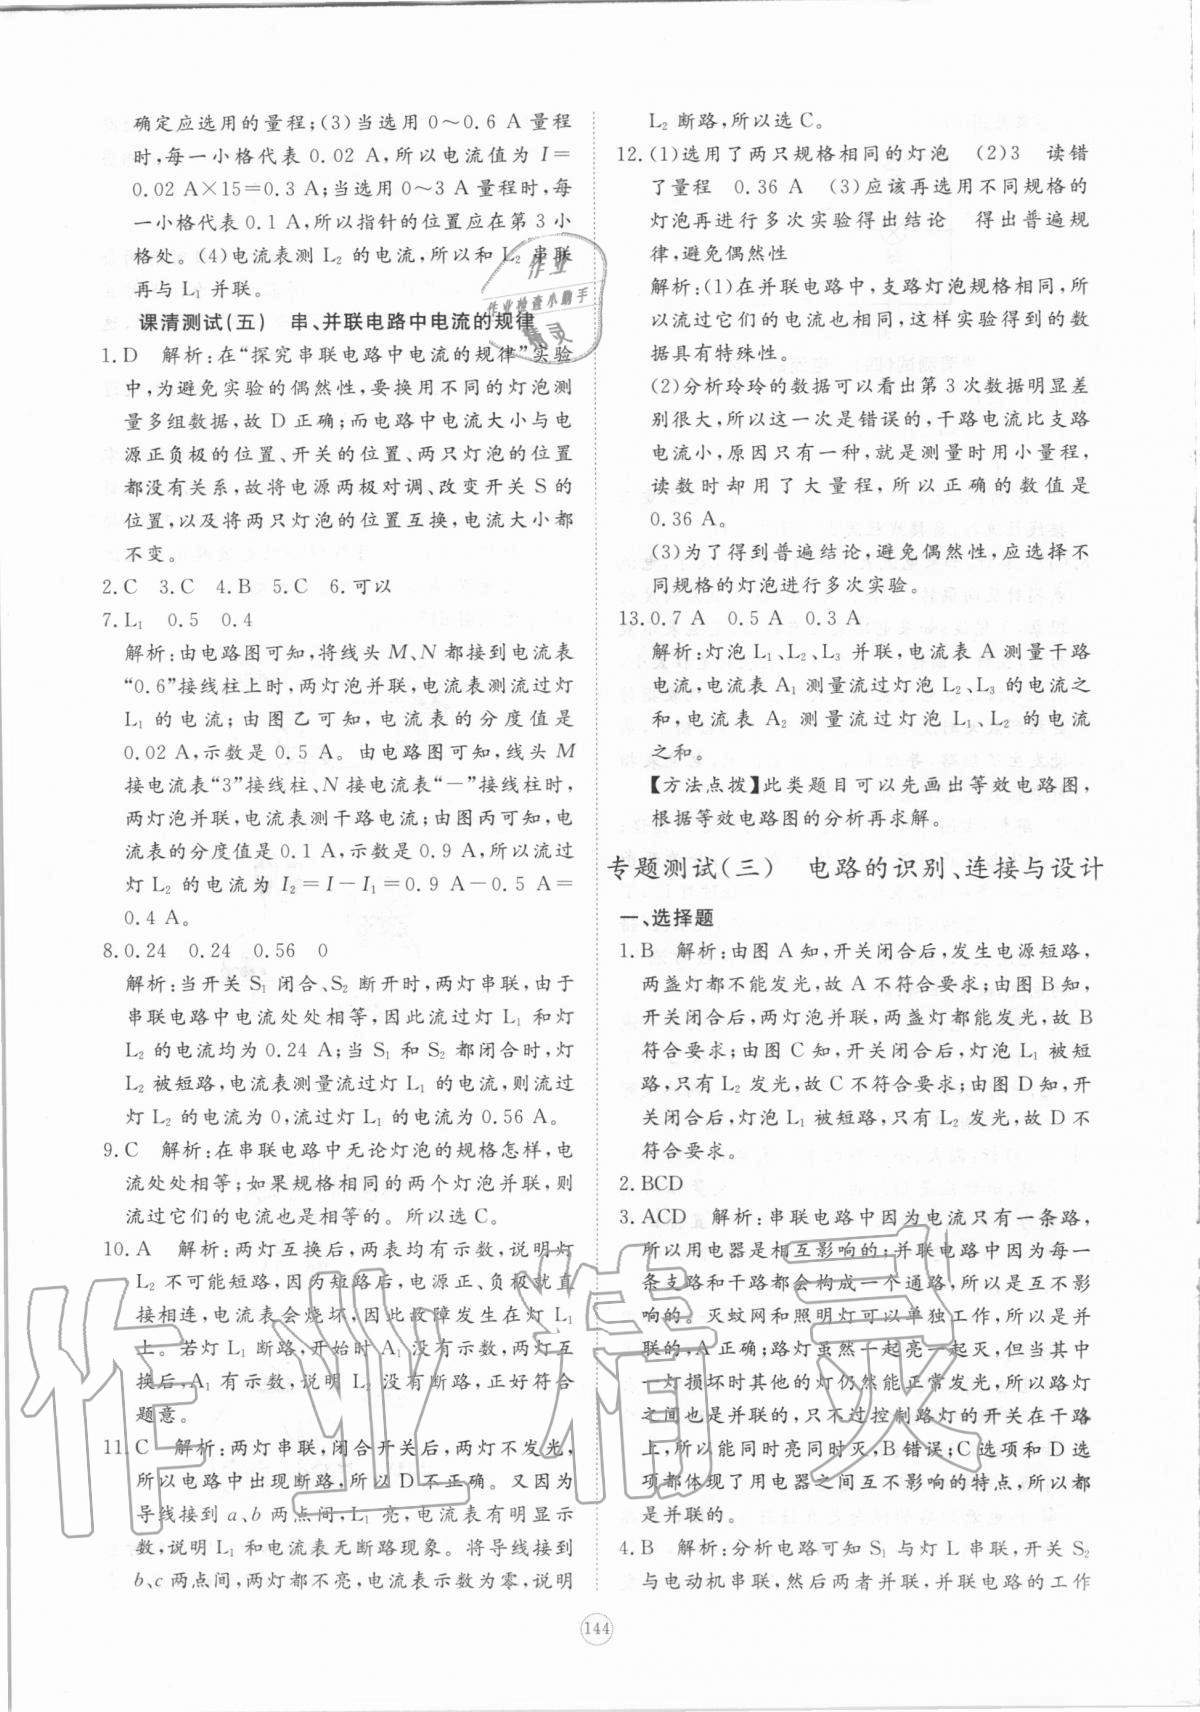 确定应选用的量程;(3)当选用 0～0.6 A 量程
时,每一小格代表 0.02 A,所以电流值为 I=
0.02 A×15=0.3 A;当选用 0～3 A 量程时,每
一小格代表 0.1 A,所以指针的位置应在第 3 小
格处。(4)电流表测 L₂ 的电流,所以和 L₂ 串联
再与 L₁ 并联。
课清测试(五) 串、并联电路中电流的规律
1.D 解析:在“探究串联电路中电流的规律”实验
中,为避免实验的偶然性,要换用不同的灯泡测
量多组数据,故 D 正确;而电路中电流大小与电
源正负极的位置、开关的位置、两只灯泡的位置
都没有关系,故将电源两极对调、改变开关 S 的
位置,以及将两只灯泡的位置互换,电流大小都
不变。
2.C 3.C 4.B 5.C 6.可以
7.L₁ 0.5 0.4
解析:由电路图可知,将线头 M、N 都接到电流表
“0.6”接线柱上时,两灯泡并联,电流表测流过灯
L₁ 的电流;由图乙可知,电流表的分度值是
0.02 A,示数是 0.5 A。由电路图可知,线头 M
接电流表“3”接线柱、N 接电流表“－”接线柱时,
两灯泡并联,电流表测干路电流;由图丙可知,电
流表的分度值是 0.1 A,示数是 0.9 A,所以流过
灯 L₂ 的电流为 I₂=I－I₁=0.9 A－0.5 A=
0.4 A。
8.0.24 0.24 0.56 0
解析:当开关 S₁ 闭合、S₂ 断开时,两灯串联,由于
串联电路中电流处处相等,因此流过灯 L₁ 和灯
L₂ 的电流均为 0.24 A;当 S₁ 和 S₂ 都闭合时,灯
L₂ 被短路,电流表测量流过灯 L₁ 的电流,则流过
灯 L₂ 的电流为 0,流过灯 L₁ 的电流为 0.56 A。
9.C 解析:在串联电路中无论灯泡的规格怎样,电
流处处相等;如果规格相同的两个灯泡并联,则
流过它们的电流也是相等的。所以选 C。
10.A 解析:两灯互换后,两表均有示数,说明灯
L₂ 不可能短路,因为短路后,电源正、负极就直
接相连,电流表会烧坏,因此故障发生在灯 L₁
上。若灯 L₁ 断路,开始时 A₁ 没有示数,两灯互
换后,A₁ 有示数,说明 L₂ 没有断路,正好符合
题意。
11.C 解析:两灯串联,闭合开关后,两灯不发光,
所以电路中出现断路,所以 D 不正确。又因为
导线接到 a、b 两点间,L₁ 亮,电流表有明显示
数,说明 L₁ 和电流表无断路现象。将导线接到
b、c 两点间,两灯都不亮,电流表示数为零,说明
L₂ 断路,所以选 C。
12.(1)选用了两只规格相同的灯泡 (2)3 读错
了量程 0.36 A (3)应该再选用不同规格的
灯泡再进行多次实验得出结论 得出普遍规
律,避免偶然性
解析:(1)在并联电路中,支路灯泡规格相同,所
以流过它们的电流也相同,这样实验得到的数
据具有特殊性。
(2)分析玲玲的数据可以看出第 3 次数据明显差
别很大,所以这一次是错误的,干路电流比支路
电流小,原因只有一种,就是测量时用小量程,
读数时却用了大量程,所以正确的数值是
0.36 A。
(3)为了得到普遍结论,避免偶然性,应选择不
同规格的灯泡进行多次实验。
13.0.7 A 0.5 A 0.3 A
解析:灯泡 L₁、L₂、L₃ 并联,电流表 A 测量干路
电流,电流表 A₁ 测量流过灯泡 L₂、L₃ 的电流之
和,电流表 A₂ 测量流过灯泡 L₁、L₂ 的电流
之和。
【方法点拨】此类题目可以先画出等效电路图,
根据等效电路图的分析再求解。
专题测试(三) 电路的识别、连接与设计
一、选择题
1.B 解析:由图 A 知,开关闭合后,发生电源短路,
两盏灯都不能发光,故 A 不符合要求;由图 B 知,
开关闭合后,两灯泡并联,两盏灯都能发光,故 B
符合要求;由图 C 知,开关闭合后,灯泡 L₁ 被短
路,只有 L₂ 发光,故 C 不符合要求;由图 D 知,开
关闭合后,灯泡 L₁ 被短路,只有 L₂ 发光,故 D 不
符合要求。
2.BCD
3.ACD 解析:串联电路中因为电流只有一条路,
所以用电器是相互影响的;并联电路中因为每一
条支路和干路都会构成一个通路,所以是互不影
响的。灭蚊网和照明灯可以单独工作,所以是并
联的,A 正确;路灯虽然一起亮一起灭,但当其中
一灯损坏时其他的灯仍然能正常发光,所以路灯
之间也是并联的,只不过控制路灯的开关在干路
上,所以能同时亮同时灭,B 错误;C 选项和 D 选
项都体现了用电器之间互不影响的特点,所以都
是并联的。
4.B 解析:分析电路可知 S₁ 与灯 L 串联,开关 S₂
与电动机串联,然后两者并联,并联电路的工作
144
作业
作业检查小助手
精灵
作业精灵